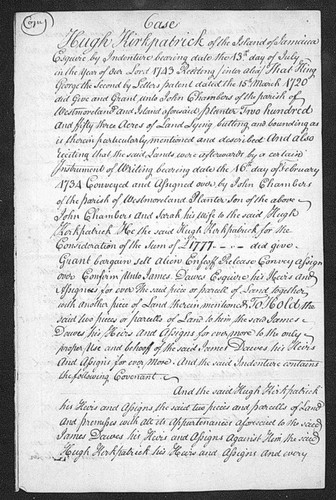 Copy
Case
Hugh Kirkpatrick of the Island of Jamaica
Esquire by Indenture bearing date the 13th day of July
in the Year of our Lord 1743 Reciting (inter alia) That King
George the Second by Letters patent dated the 15th March 1720
did Give and Grant unto John Chambers of the parish of
Westmoreland and Island aforesaid Planter Two hundred
and fifty three Acres of Land Lying butting and bounding as
is therein particularly mentioned and described And also
reciting that the said Lands were afterwards by a certain
Instrument of Writing bearing date the 16th day of February
1734 Conveyed and Assigned over by John Chambers
of the parish of Westmoreland Planter Son of the above
John Chambers and Sarah his Wife to the said Hugh
Kirkpatrick He the said Hugh Kirkpatrick for the
Consideration of the Sum of £1777 - .. - did give
Grant bargain sell Alien Enfeoff Release Convey Assign
over Confirm Unto James Dawes Esquire his Heirs and
Assignes for ever The said piece or parcell of Land together
with another piece of Land therein mentioned To Hold the
said two pieces or parcells of Land to him the said James
Dawes his Heirs and Assigns for evermore to the only
proper Use and behoof of the said James Dawes his Heirs
And Assigns for ever more. And the said Indenture contains
the following Covenant
And the said Hugh Kirkpatrick
his Heirs and Assigns the said two pieces and parcells of Land
and premises with all its Appurtenances aforesaid to the said
James Dawes his Heirs and Assigns Against Him the said
Hugh Kirkpatrick his Heirs and Assigns and every